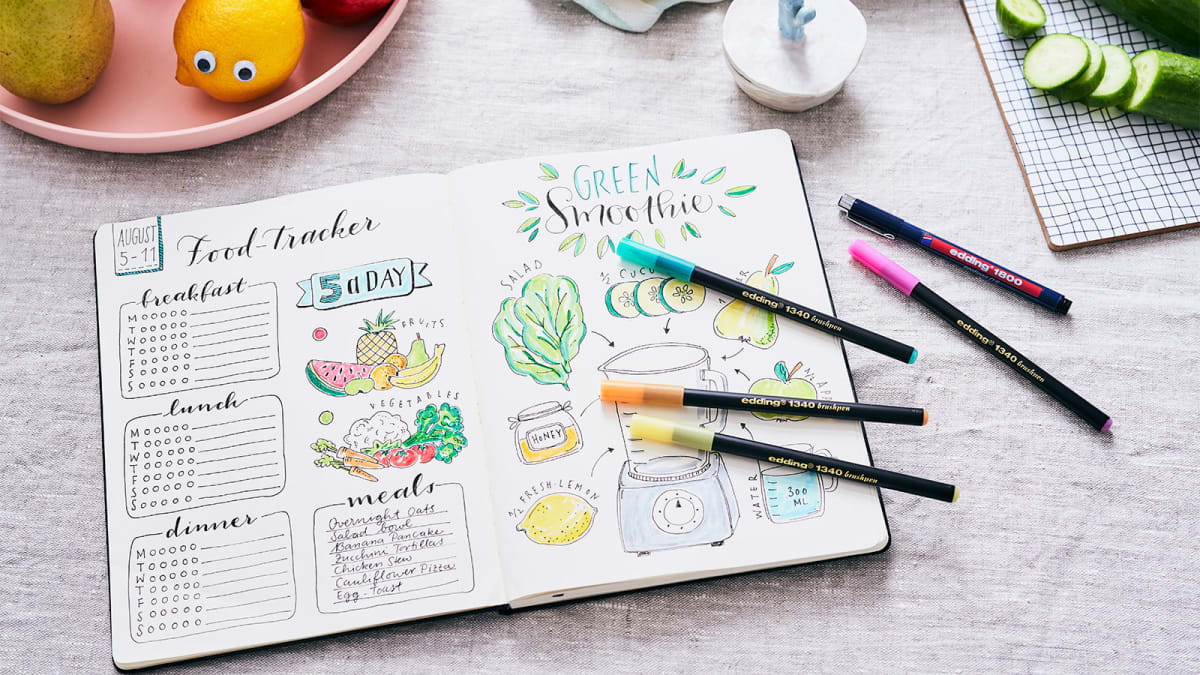 AUGUST
5-11
Food-tracker
breakfast
M
T
W
T
F
S
S
lunch
M
T
W
T
F
S
S
dinner
M
T
W
T
F
S
S
5 a DAY
FRUITS
VEGETABLES
meals
Overnight Oats
Salad bowl
Banana Pancake
Zucchini Tortillas
Chicken Stew
Cauliflower Pizza
Egg-Toast
GREEN
Smoothie
SALAD
½ CUCU
HONEY
½ FRESH-LEMON
WATER
300
ML
edding® 1340 brushpen
edding® 1340 brushpen
edding® 1340 brushpen
edding® 1800
edding® 1340 brushpen